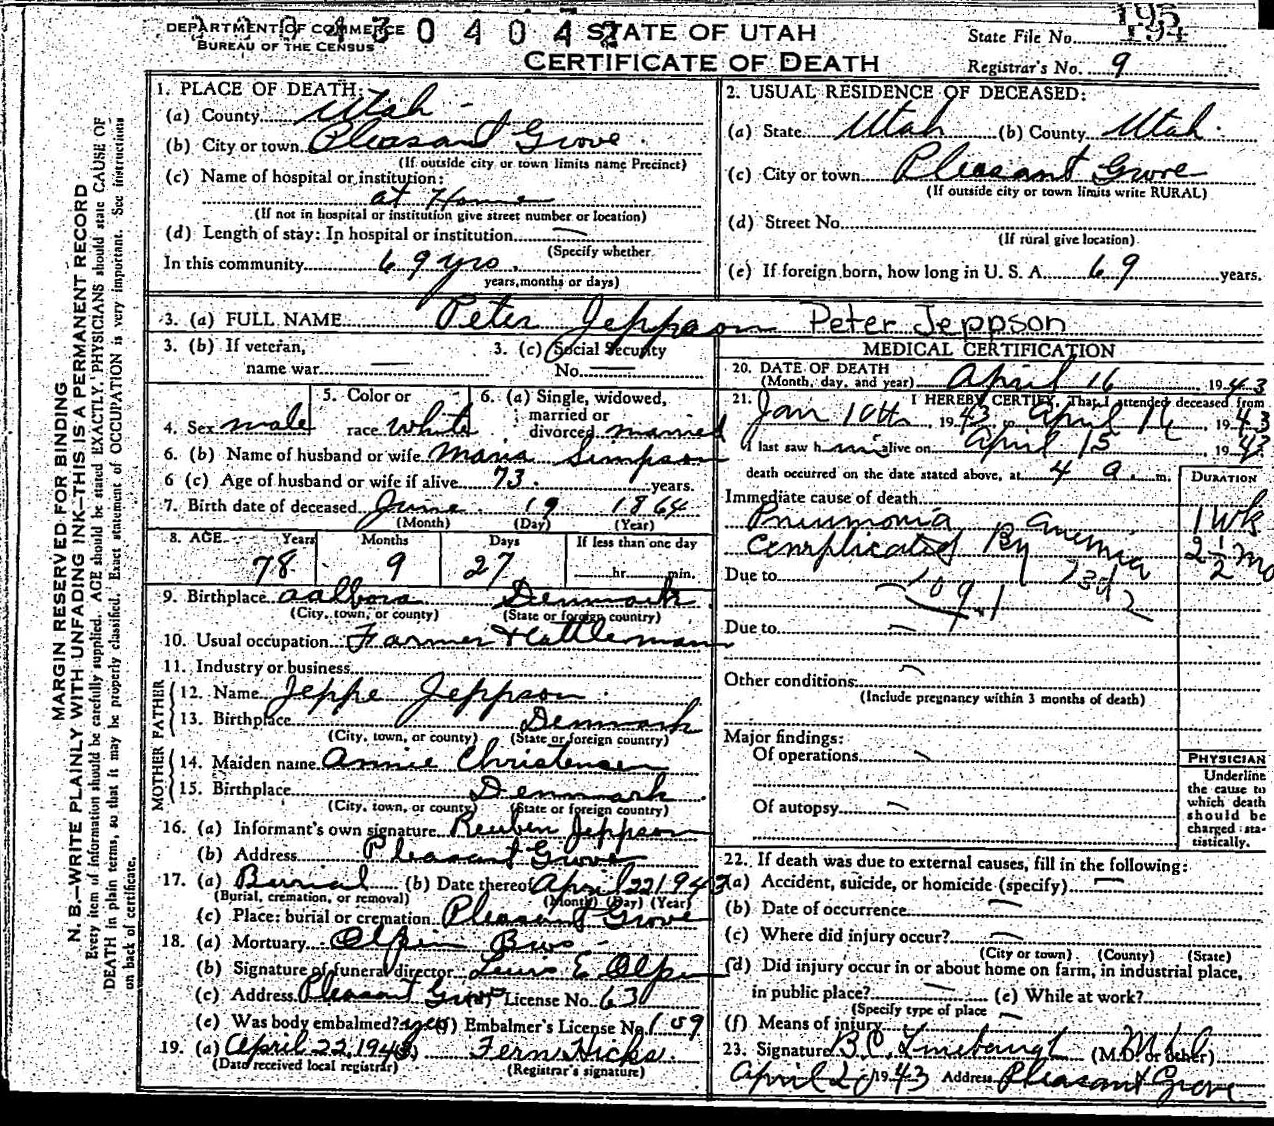 DEPARTMENT OF COMMERCE
BUREAU OF THE CENSUS
STATE OF UTAH
CERTIFICATE OF DEATH
State File No. 195
194
Registrar's No. 9
MARGIN RESERVED FOR BINDING
N. B.—WRITE PLAINLY WITH UNFADING INK—THIS IS A PERMANENT RECORD
Every item of information should be carefully supplied. AGE should be stated EXACTLY. PHYSICIANS should state CAUSE OF
DEATH in plain terms, so that it may be properly classified. Exact statement of OCCUPATION is very important. See instructions
on back of certificate.
1. PLACE OF DEATH:
(a) County Utah
(b) City or town Pleasant Grove
(If outside city or town limits name Precinct)
(c) Name of hospital or institution:
at Home
(If not in hospital or institution give street number or location)
(d) Length of stay: In hospital or institution —
(Specify whether
In this community 69 yrs.
years, months or days)
2. USUAL RESIDENCE OF DECEASED:
(a) State Utah (b) County Utah
(c) City or town Pleasant Grove
(If outside city or town limits write RURAL)
(d) Street No.
(If rural give location)
(e) If foreign born, how long in U. S. A. 69 years.
3. (a) FULL NAME Peter Jeppson Peter Jeppson
3. (b) If veteran,
name war —
3. (c) Social Security
No. —
4. Sex male
5. Color or
race white
6. (a) Single, widowed,
married or
divorced married
6. (b) Name of husband or wife Maria Simpson
6 (c) Age of husband or wife if alive 73 years.
7. Birth date of deceased June 19 1864
(Month) (Day) (Year)
8. AGE Years Months Days If less than one day
78 9 27 hr. min.
9. Birthplace Denmark
(City, town, or county) (State or foreign country)
10. Usual occupation Farmer & Cattleman
11. Industry or business
FATHER
12. Name Jeppe Jeppson
13. Birthplace Denmark
(City, town, or county) (State or foreign country)
MOTHER
14. Maiden name Annie Christensen
15. Birthplace Denmark
(City, town, or county) (State or foreign country)
16. (a) Informant's own signature Reuben Jeppson
(b) Address Pleasant Grove
17. (a) Burial (b) Date thereof April 22 1943
(Burial, cremation, or removal) (Month) (Day) (Year)
(c) Place: burial or cremation Pleasant Grove
18. (a) Mortuary Olpin Bros
(b) Signature of funeral director E Olpin
(c) Address Pleasant Grove License No. 63
(e) Was body embalmed? yes (f) Embalmer's License No. 109
19. (a) April 22, 1943 Fern Hicks
(Date received local registrar) (Registrar's signature)
MEDICAL CERTIFICATION
20. DATE OF DEATH
(Month, day, and year) April 16, 1943
21. I HEREBY CERTIFY, That I attended deceased from
Jan 10th, 1943 to April 16, 1943
I last saw him alive on April 15 1943
death occurred on the date stated above, at 4 a. m.
DURATION
Immediate cause of death
Pneumonia 1 wk
Complicated By anemia 2 1/2 mo
Due to
Due to —
Other conditions —
(Include pregnancy within 3 months of death)
Major findings:
Of operations —
Of autopsy —
PHYSICIAN
Underline
the cause to
which death
should be
charged sta-
tistically.
22. If death was due to external causes, fill in the following:
(a) Accident, suicide, or homicide (specify) —
(b) Date of occurrence —
(c) Where did injury occur? —
(City or town) (County) (State)
(d) Did injury occur in or about home on farm, in industrial place,
in public place? — (e) While at work?
(Specify type of place
(f) Means of injury —
23. Signature B. C. Linebaugh M.D. (M.D. or other)
April 20 1943 Address Pleasant Grove